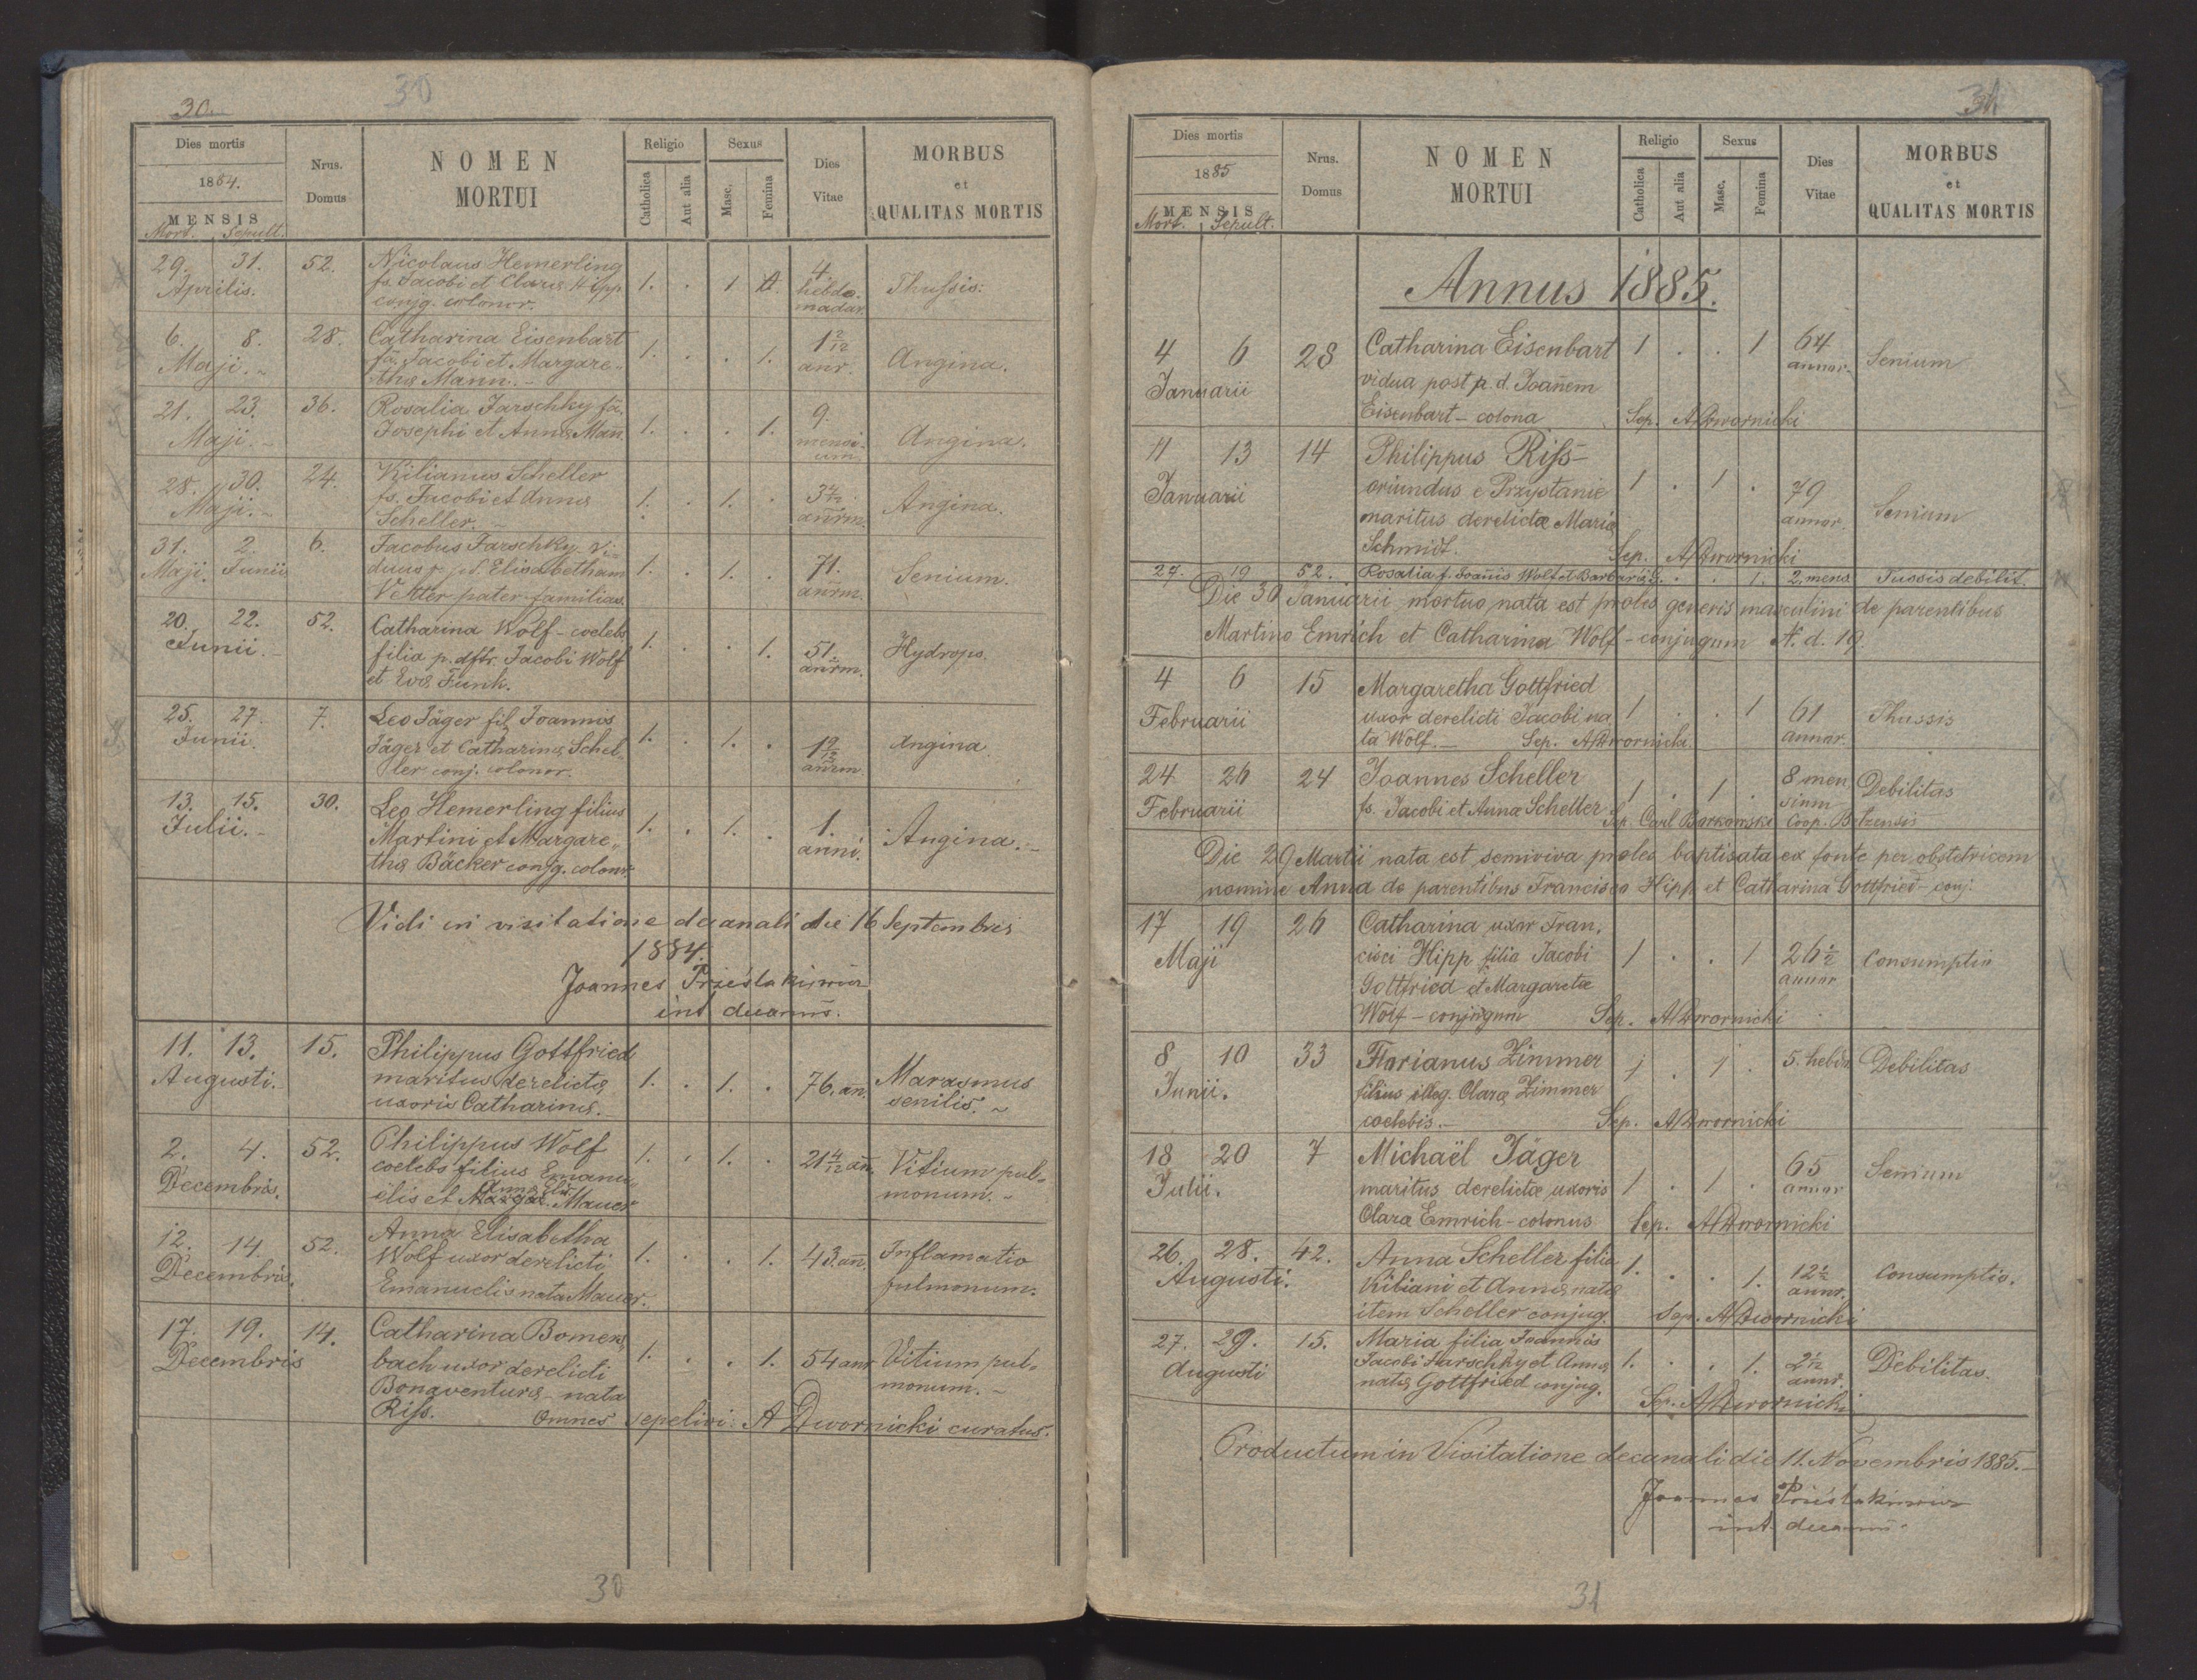 30
30.
Dies mortis
1884.
MENSIS
Mort. Sepult.
Nrus. Domus
NOMEN MORTUI
Religio
Catholica
Aut alia
Sexus
Masc.
Femina
Dies Vitae
MORBUS et QUALITAS MORTIS
29. 31. 52. Nicolaus Hemerling
Aprilis. fs. Jacobi et Clarae Hipp 1. . 1 4. hebdo- Thussis.
conjg. colonor. madar.
6. 8. 28. Catharina Eisenbart 1 2/12
Maji. fa. Jacobi et Margare- 1. . . 1. anr. Angina.
tha Mann.
21. 23. 36. Rosalia Jarschky fa. 9.
Maji. Josephi et Anna Mañ. 1. . . 1. mensi- Angina.
um
28. 30. 24. Kilianus Scheller
Maji. fs. Jacobi et Anna 1. . 1. . 3 4/12 Angina.
Scheller. añrm.
31. 2. 6. Jacobus Jarschky vi-
Maji. Junii duus p. pd. Elisabetham 1. . 1. . 71. Senium.
Vetter pater familias. añrm.
20. 22. 52. Catharina Wolf - coelebs
Junii. filia p. dftr. Jacobi Wolf 1. . . 1. 51. Hydrops.
et Eva Funk. añrm.
25. 27. 7. Leo Jäger fil. Joannis
Junii. Jäger et Catharina Schel- 1. . 1. . Angina
ler conj. colonor. añrm.
13. 15. 30. Leo Hemerling filius
Julii. Martini et Margare- 1. . 1. . 1. Angina.
tha Bäcker conjg. colonr. anni.
Vidi in visitatione decanali die 16 Septembris
1884.
Joannes
int decanus.
11. 13. 15. Philippus Gottfried
Augusti. maritus derelicta 1. . 1. . 76. an. Marasmus
uxoris Catharina. senilis.
2. 4. 52. Philippus Wolf
Decembris. coelebs filius Emanu- 1. . 1. . 21 4/12 añ. Vitium pul-
elis et Anna Elis. Mauer monum.
12. 14. 52. Anna Elisabetha
Decembris. Wolf uxor derelicti 1. . . 1. 43. añ. Inflamatio
Emanuelis nata Mauer. pulmonum.
17. 19. 14. Catharina Bomers
Decembris bach uxor derelicti 1. . . 1. 54 anr Vitium pul-
Bonaventura - nata monum.
Riss. Omnes sepelivi: A Dwornicki curatus.
30
31
Dies mortis
1885
MENSIS
Mort. Sepult.
Nrus. Domus
NOMEN MORTUI
Religio
Catholica
Aut alia
Sexus
Masc.
Femina
Dies Vitae
MORBUS et QUALITAS MORTIS
Annus 1885.
4 6 28 Catharina Eisenbart 1 . . 1 64 Senium
Januarii vidua post p. d. Joañem annor.
Eisenbart - colona Sep. ADwornicki
11 13 14 Philippus Riss -
Januarii oriundus e Przystanie 1 . 1 . 79
maritus derelictæ Mariæ annor. Senium
Schmidt. Sep. ADwornicki
27. 19 52. Rosalia f. Joañis Wolf et Barbara . . 1. 2 mens. Tussis debilit.
Die 30 Januarii mortuo nata est proles generis masculini de parentibus
Martino Emrich et Catharina Wolf - conjugum N. d. 19.
4 6 15 Margaretha Gottfried
Februarii uxor derelicti Jacobi na 1 . . 1 61 Thussis
ta Wolf. Sep. ADwornicki annor.
24 26 24 Joannes Scheller 1 . 1 . 8 men Debilitas
Februarii fs. Jacobi et Annæ Scheller sium
Sep. Carl Borkowski Coop. Belzensis
Die 29 Martii nata est semiviva proles baptisata ex fonte per obstetricem
nomine Anna de parentibus Francisco Hipp et Catharina Gottfried - conj.
17 19 26 Catharina uxor Fran,
Maji cisci Hipp filia Jacobi 1 . . 1 26 1/2 Consumptio
Gottfried et Margaretæ annor
Wolf - conjugum Sep. ADwornicki
8 10 33 Florianus Zimmer 1 . 1 . 5. hebdr. Debilitas
Junii. filius illeg. Claræ Zimmer
coelebis. Sep. ADwornicki
18 20 7 Michaël Jäger
Julii. maritus derelictæ uxoris 1 . 1 . 65 Senium
Clara Emrich - colonus annor
Sep. ADwornicki
26. 28. 42. Anna Scheller filia
Augusti. Kiliani et Anna nata 1. . . 1. 12 1/2 Consumptio.
item Scheller conjug. annr.
Sep. ADwornicki
27. 29. 15. Maria filia Joannis
Augusti Jacobi Jarschky et Anna 1. . . 1. 2 1/12 Debilitas.
nata Gottfried conjug. annr.
Sep. ADwornicki
Productum in Visitatione decanali die 11. Novembris 1885.
Joannes
int decanus
31